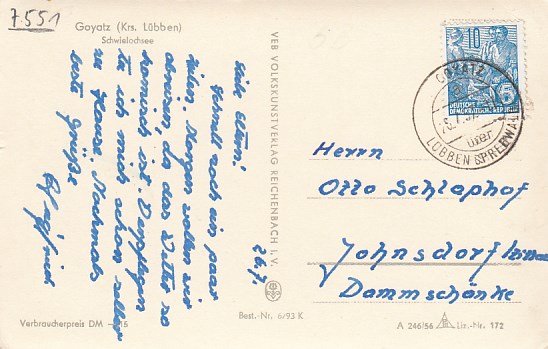 7551
Goyatz (Krs. Lübben)
Schwielochsee
26.7.
Liebe Eltern!
Schnell noch ein paar
Zeilen. Morgen wollen wir
da das Wetter so
komisch ist.
ich mich schon selber
zu Hause. Nochmals
beste Grüße
Siegfried
VEB VOLKSKUNSTVERLAG REICHENBACH I. V.
10
DEUTSCHE
DEMOKRATISCHE REPUBLIK
GOYATZ
über
LÜBBEN SPREEWALD
Herrn
Otto Schlaphof
Johnsdorf
Dammschänke
Verbraucherpreis DM -,15
Best.-Nr. 6/93 K
A 246/56 Liz.-Nr. 172